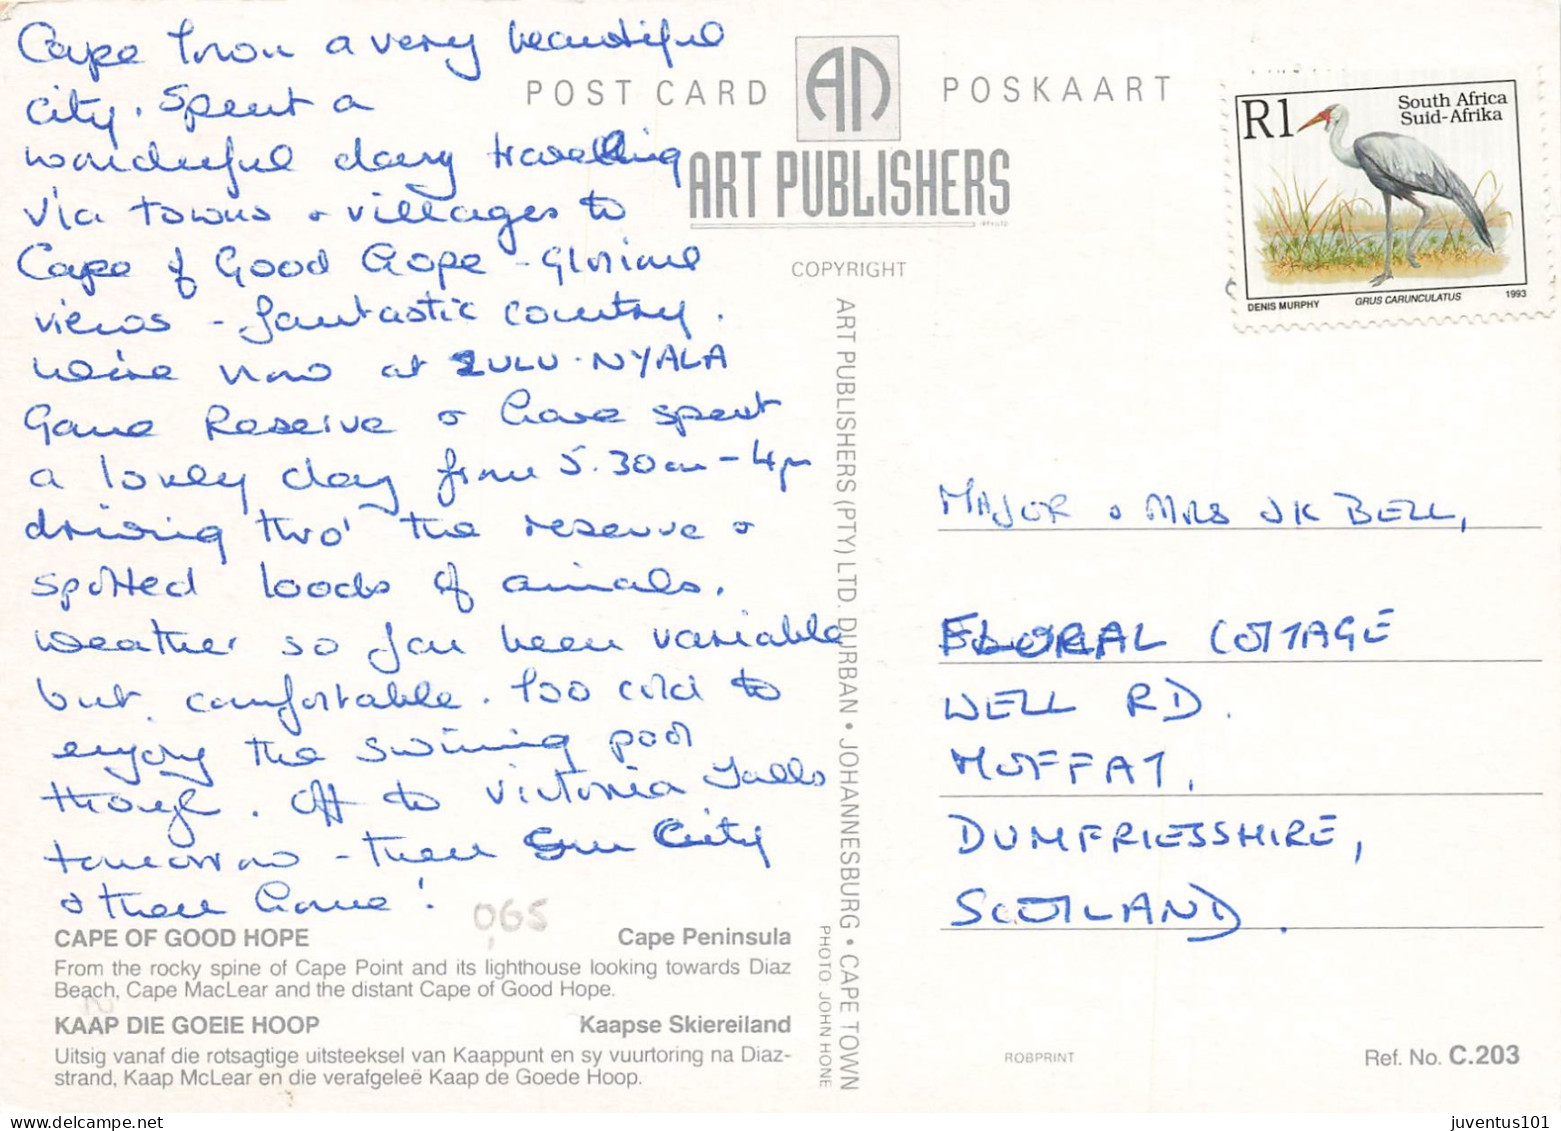 Cape Town a very beautiful
city. Spent a
wonderful day travelling
via towns & villages to
Cape of Good Hope - Glorious
views - fantastic country.
We're now at ZULU-NYALA
Game Reserve & have spent
a lovely day from 5.30am - 4pm
driving thro' the reserve &
spotted loads of animals.
Weather so far been variable
but comfortable. Too cold to
enjoy the swimming pool
though. Off to Victoria Falls
tomorrow - then Sun City
& then home!
065
CAPE OF GOOD HOPE Cape Peninsula
From the rocky spine of Cape Point and its lighthouse looking towards Diaz
Beach, Cape MacLear and the distant Cape of Good Hope.
KAAP DIE GOEIE HOOP Kaapse Skiereiland
Uitsig vanaf die rotsagtige uitsteeksel van Kaappunt en sy vuurtoring na Diaz-
strand, Kaap McLear en die verafgeleë Kaap de Goede Hoop.
POST CARD POSKAART
ART PUBLISHERS
COPYRIGHT
ART PUBLISHERS (PTY) LTD. DURBAN • JOHANNESBURG • CAPE TOWN
PHOTO: JOHN HONE
R1 South Africa
Suid-Afrika
DENIS MURPHY GRUS CARUNCULATUS 1993
MAJOR & MRS JK BELL,
FLORAL COTTAGE
WELL RD.
MOFFAT,
DUMFRIESSHIRE,
SCOTLAND.
ROBPRINT
Ref. No. C.203
juventus101